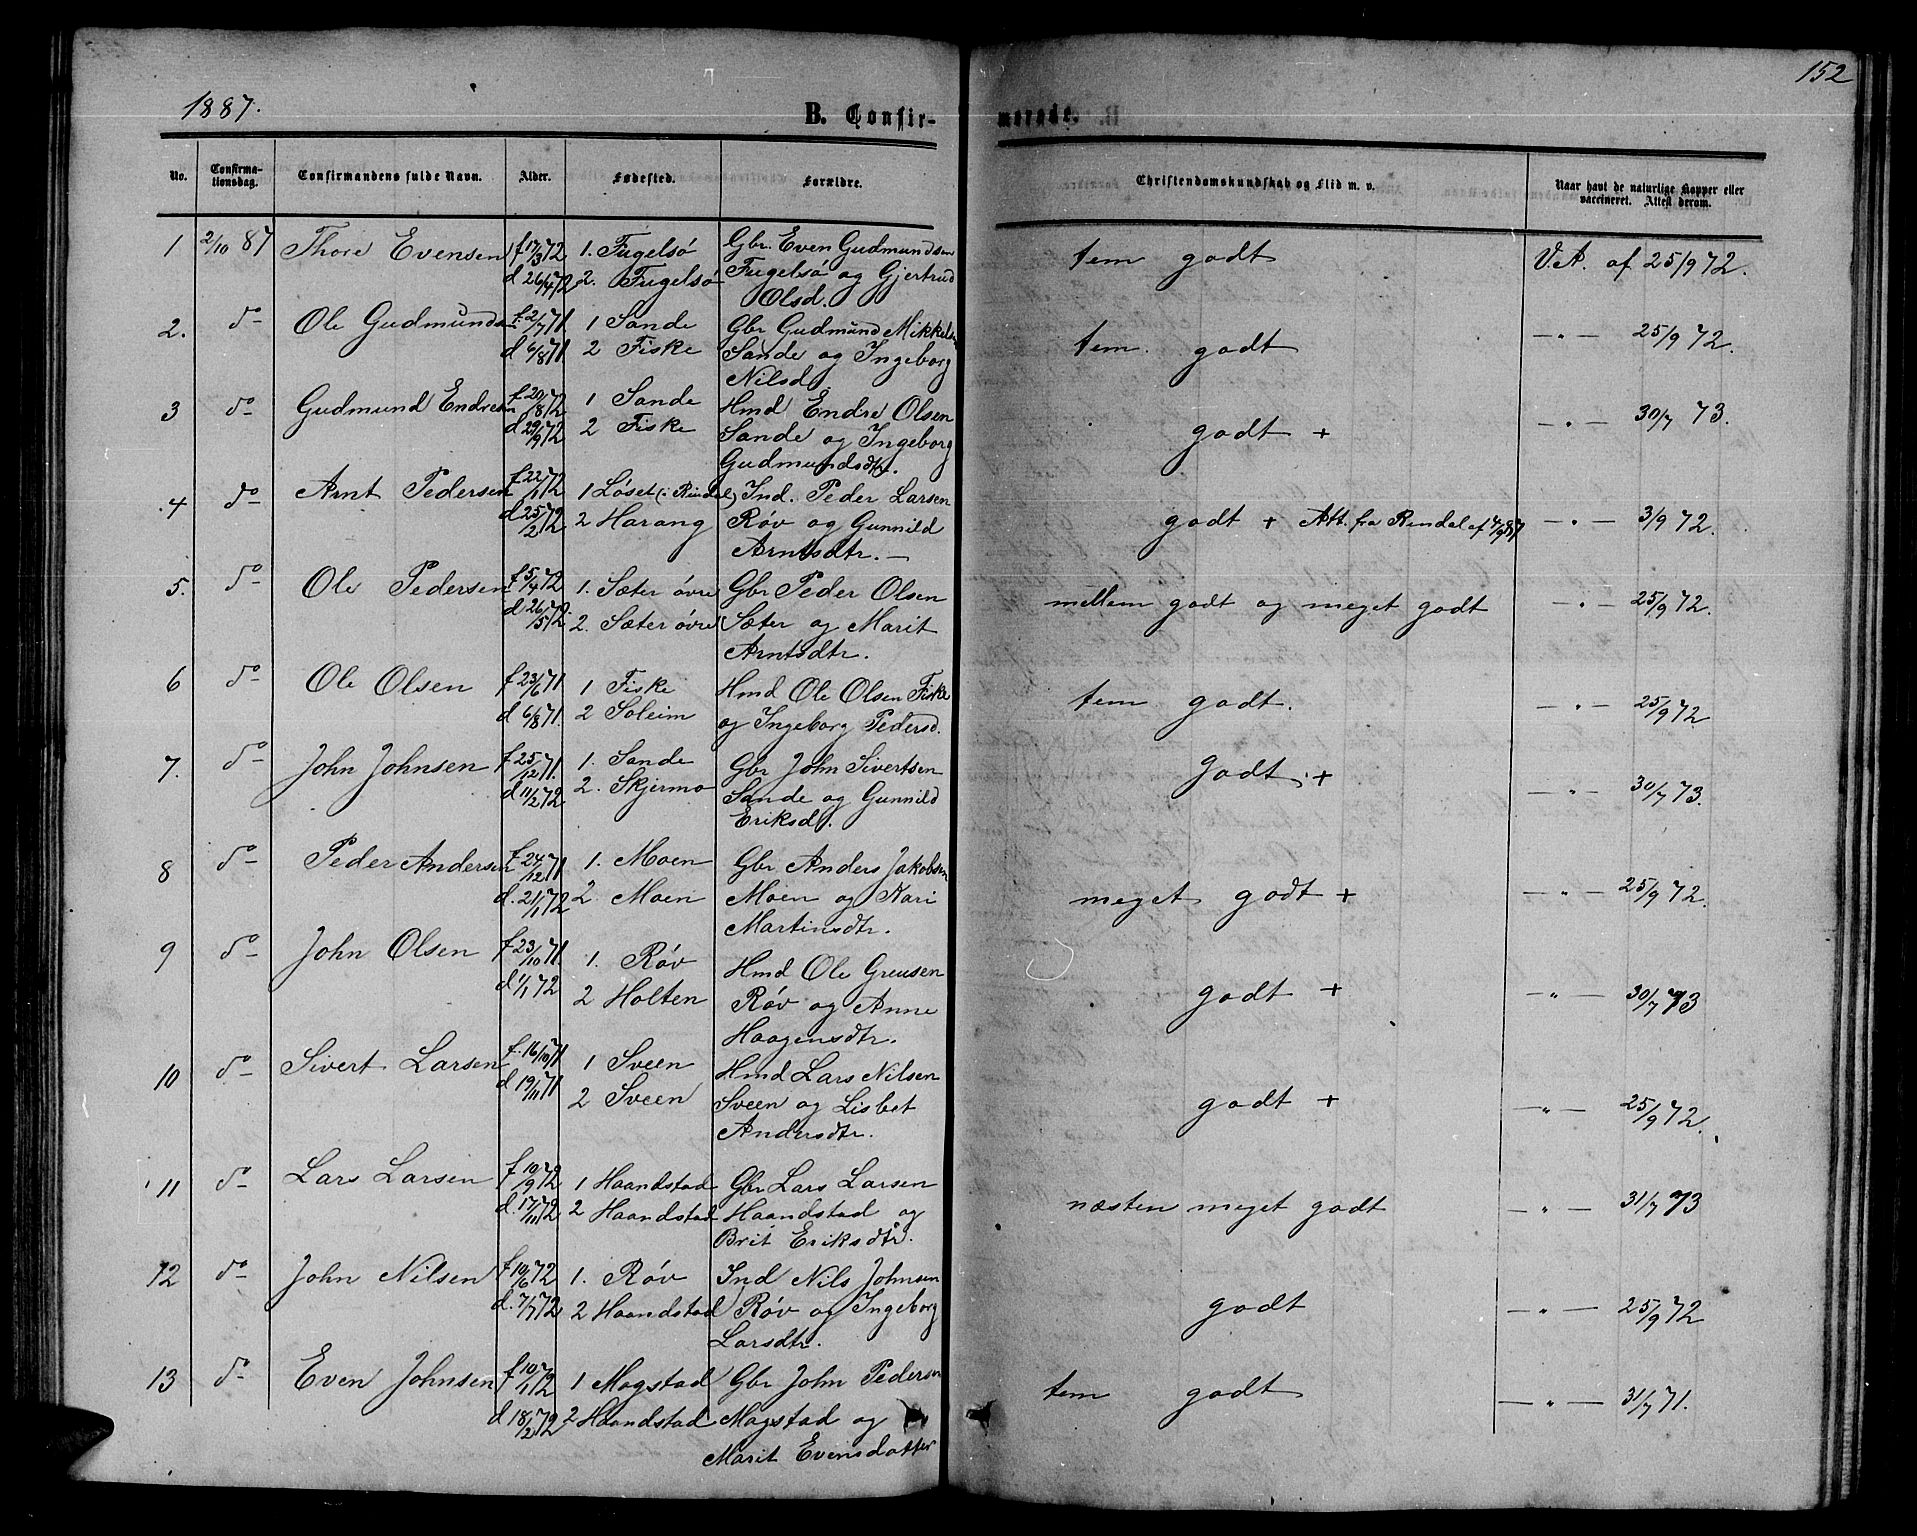 152
1887.
B. Confir-
merede.
No.
Confirma-
tionsdag.
Confirmandens fulde Navn.
Alder.
Fødested.
Forældre.
Christendomskundskab og Flid m. v.
Naar havt de naturlige Kopper eller
vaccineret. Attest derom.
1 2/10 87 Thore Evensen f 17/3 72 1. Fugelsø Gbr. Even Gudmundsen tem godt V.A. af 25/9 72.
d 26/4 72 2. Fugelsø Fugelsø og Gjertrud
Olsd.
2. do Ole Gudmunds f. 2/7 71. 1 Sande Gbr Gudmund Mikkels tem. godt —"— 25/9 72.
d 6/8 71 2 Fiske Sande og Ingeborg
Nilsd.
3 do Gudmund Endresen f 20/8 72 1 Sande Hmd Endre Olsen godt + —"— 30/7 73.
d 29/9 72 2 Fiske Sande og Ingeborg
Gudmundsdtr.
4 do Arnt Pedersen f 22/1 72 1 Løset (i Rindal) Ind. Peder Larsen godt + Att. fra Rindal af 4/9 87 —"— 3/9 72.
d 25/2 72 2 Harang Røv og Gunnild
Arntsdtr. —
5. do Ole Pedersen f 5/4 72 1. Sæter øvre Gbr Peder Olsen mellem godt og meget godt —"— 25/9 72.
d 26/5 72. 2. Sæter øvre Sæter og Marit
Arntsdtr.
6 do Ole Olsen f 23/6 71 1 Fiske Hmd Ole Olsen Fiske tem godt. —"— 25/9 72
d 6/8 71. 2 Soleim og Ingeborg Pedersd.
7. do John Johnsen f 25/12 71. 1. Sande Gbr John Sivertsen godt. + —"— 30/7 73.
d 11/2 72 2. Skjermo Sande og Gunnild
Eriksd.
8 do Peder Andersen f 24/12 71 1. Moen Gbr Anders Jakobsen meget godt + —"— 25/9 72.
d. 21/1 72 2 Moen Moen og Kari
Martinsdtr.
9 do John Olsen f 23/10 71 1. Røv Hmd Ole Greusen godt + —"— 30/7 73
d 1/1 72 2 Holten Røv og Anne
Haagensdtr.
10 do Sivert Larsen f. 16/10 71 1 Sveen Hmd Lars Nilsen godt + —"— 25/9 72.
d 19/11 71 2 Sveen Sveen og Lisbet
Andersdtr.
11 do Lars Larsen f 10/9 72 1 Haandstad Gbr Lars Larsen næsten meget godt —"— 31/7 73
d. 17/11 72 2 Haandstad Haandstad og
Brit Eriksdtr.
12 do John Nilsen f 10/6 72 1. Røv Ind Nils Johnsen godt —"— 25/9 72
d. 7/7 72 2 Haandstad Røv og Ingeborg
Larsdtr.
13 do Even Johnsen f 10/1 72 1 Magstad Gbr John Pedersen tem godt —"— 31/7 71.
d 18/2 72 2 Haandstad Magstad og
Marit Evensdatter